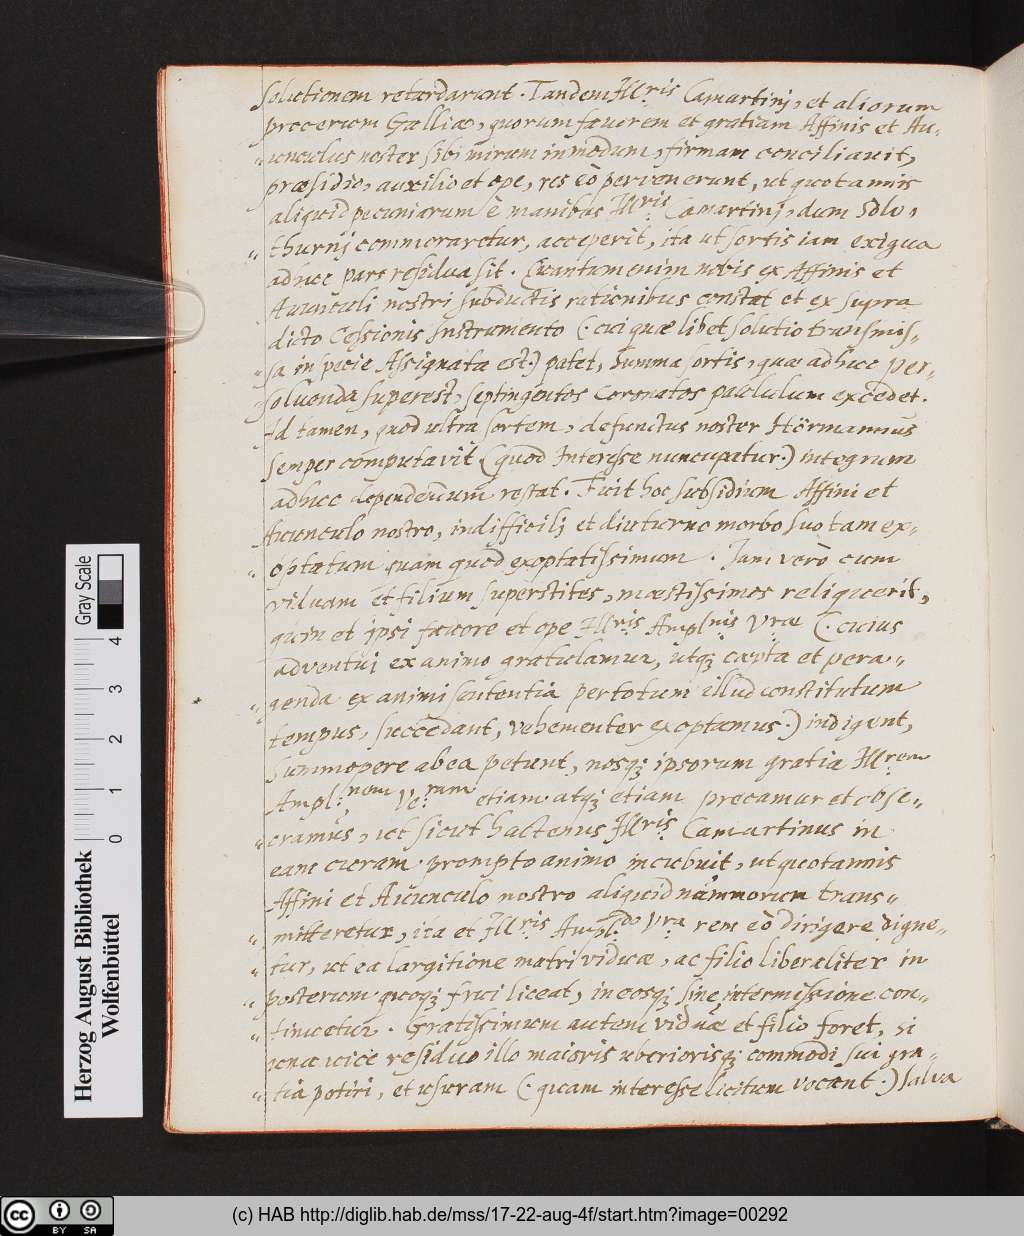 solutionem retardarunt. Tandem Ill:ris Camartinj, et aliorum
procerum Galliæ, quorum favorem et gratiam Affinis et Au,,
,,unculus noster sibi mirum inmodum, firmam conciliauit,
præsidio, auxilio et ope, res eò pervenerunt, ut quotannis
aliquid pecuniarum è manibus Ill:ris Camartinj, dum Solo,,
,,thurnj commoraretur, acceperit, ita ut sortis iam exigua
adhuc pars residua sit. Quantum enim nobis ex Affinis et
Auunculi nostri subductis rationibus constat et ex supra
dicto Cessionis Instrumento (. cui quælibet solutio transmis,,
,,sa in specie Assignata est.) patet, Summa sortis, quæ adhuc per,,
,,soluenda superest, septingentos Coronatos paululum excedet.
Id tamen, quod ultra sortem, defunctus noster Hörmannus
semper computavit (quod Interesse nuncupatur.) integrum
adhuc dependendum restat. Fuit hoc subsidium Affini et
Auunculo nostro, in difficilj et diuturno morbo suo tam ex,,
,,optatum quam quod exoptatissimum. Jam verò cum
viduam et filium superstites, mæstissimos reliquerit,
quin et ipsi favore et ope Ill:ris Ampl:nis Vræ (. cuius
adventui ex animo gratulamur, utq; cæpta et pera,,
,,genda ex animi sententia per totum illud constitutum
tempus, succedant, vehementer exoptamus.) indigent,
Summopere ab ea petunt, nosq; ipsorum gratia Ill:rem
Ampl:nem Ve:ram etiam atq; etiam precamur et obse,,
,,cramus, ut sicut hactenus Ill:ris Camartinus in
eam curam prompto animo incubuit, ut quotannis
Affini et Auunculo nostro aliquid nummorum trans,,
,,mitteretur, ita et Ill:ris Ampl:do Vra rem eò dirigere digne,,
,,tur, ut ea largitione matri viduæ, ac filio liberaliter in
posterum quoq; frui liceat, in eosq; sine intermissione con,,
,,tinuetur. Gratissimum autem viduæ et filio foret, si
una vice residuo illo maioris uberiorisq; commodi sui gra,,
,,tia potiri, et usuram (. quam interesse licitum vocant.) salva
Herzog August Bibliothek
Wolfenbüttel
0 1 2 3 4
Gray Scale
CC BY SA
(c) HAB http://diglib.hab.de/mss/17-22-aug-4f/start.htm?image=00292